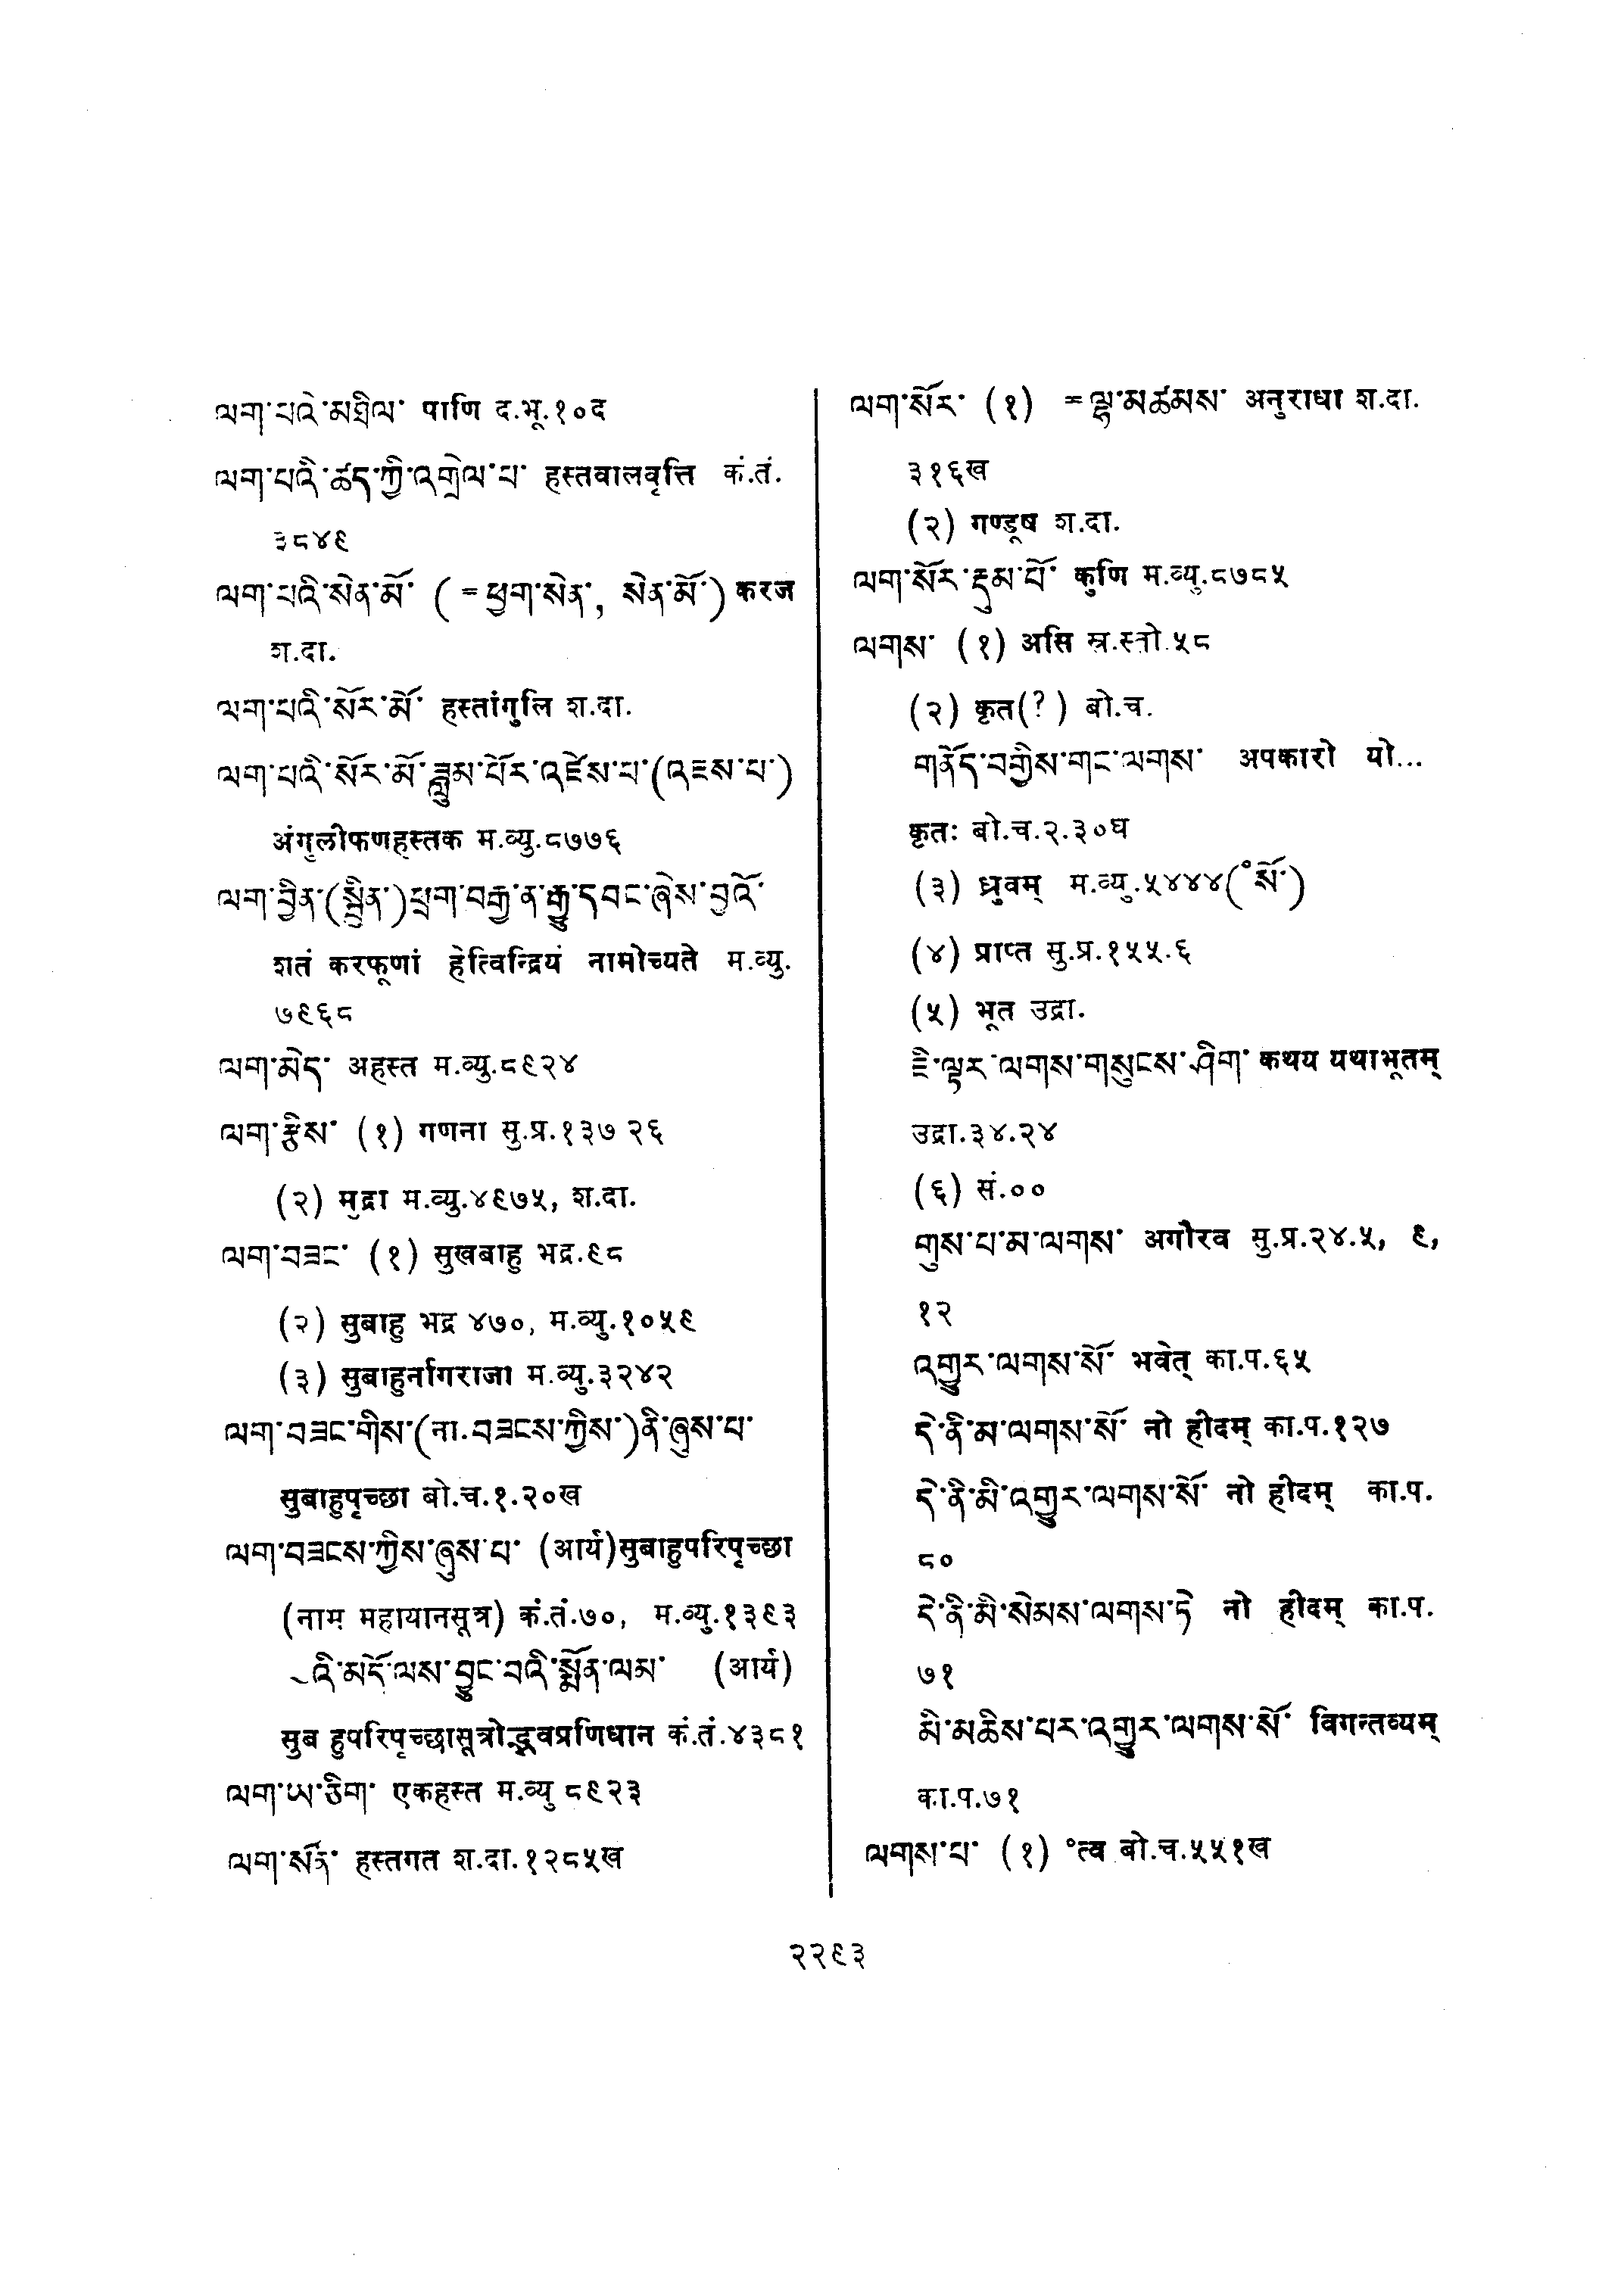 ལག་པའེ་མཐིལ་ पाणि द.भू.१०द
ལག་པའི་ཚད་ཀྱི་འགྲེལ་པ་ हस्तवालवृत्ति कं.तं.
३८४९
ལག་པའི་སེན་མོ་ (=ཕྱག་སེན་, སེན་མོ་) करज
श.दा.
ལག་པའི་སོར་མོ་ हस्तांगुलि श.दा.
ལག་པའི་སོར་མོ་ཟླུམ་པོར་འཛེས་པ་(འཇས་པ་)
अंगुलीफणहस्तक म.व्यु.८७७६
ལག་བྱིན་(སྦྲིན་)ཕྲག་བརྒྱ་ན་རྒྱུ་དབང་ཞེས་བྱའོ་
शतं करफूणां हेत्विन्द्रियं नामोच्यते म.व्यु.
७९६८
ལག་མེད་ अहस्त म.व्यु.८९२४
ལག་རྩིས་ (१) गणना सु.प्र.१३७ २६
(२) मुद्रा म.व्यु.४९७५, श.दा.
ལག་བཟང་ (१) सुखबाहु भद्र.९८
(२) सुबाहु भद्र ४७०, म.व्यु.१०५९
(३) सुबाहुर्नागराजा म.व्यु.३२४२
ལག་བཟང་གིས་(ना.བཟངས་ཀྱིས་)ནི་ཞུས་པ་
सुबाहुपृच्छा बो.च.१.२०ख
ལག་བཟངས་ཀྱིས་ཞུས་པ་ (आर्य)सुबाहुपरिपृच्छा
(नाम महायानसूत्र) कं.तं.७०, म.व्यु.१३९३
~འི་མདོ་ལས་བྱུང་བའི་སྨོན་ལམ་ (आर्य)
सुब हुपरिपृच्छासूत्रोद्भवप्रणिधान कं.तं.४३८१
ལག་ཡ་ཅིག་ एकहस्त म.व्यु ८९२३
ལག་སོན་ हस्तगत श.दा.१२८५ख
ལག་སོར་ (१) =ལྷ་མཚམས་ अनुराधा श.दा.
३१६ख
(२) गण्डूष श.दा.
ལག་སོར་རྡུམ་པོ་ कुणि म.व्यु.८७८५
ལགས་ (१) असि स्र.स्तो.५८
(२) कृत(?) बो.च.
གནོད་བགྱིས་གང་ལགས་ अपकारो यो...
कृतः बो.च.२.३०घ
(३) ध्रुवम् म.व्यु.५४४४(°སོ་)
(४) प्राप्त सु.प्र.१५५.६
(५) भूत उद्रा.
ཇི་ལྟར་ལགས་གསུངས་ཤིག་ कथय यथाभूतम्
उद्रा.३४.२४
(६) सं.००
གུས་པ་མ་ལགས་ अगौरव सु.प्र.२४.५, ९,
१२
འགྱུར་ལགས་སོ་ भवेत् का.प.६५
དེ་ནི་མ་ལགས་སོ་ नो हीदम् का.प.१२७
དེ་ནི་མི་འགྱུར་ལགས་སོ་ नो हीदम् का.प.
८०
དེ་ནི་མི་སེམས་ལགས་ཏེ नो हीदम् का.प.
७१
མི་མཆིས་པར་འགྱུར་ལགས་སོ་ विगन्तव्यम्
का.प.७१
ལགས་པ་ (१) °त्व बो.च.५५१ख
२२९३